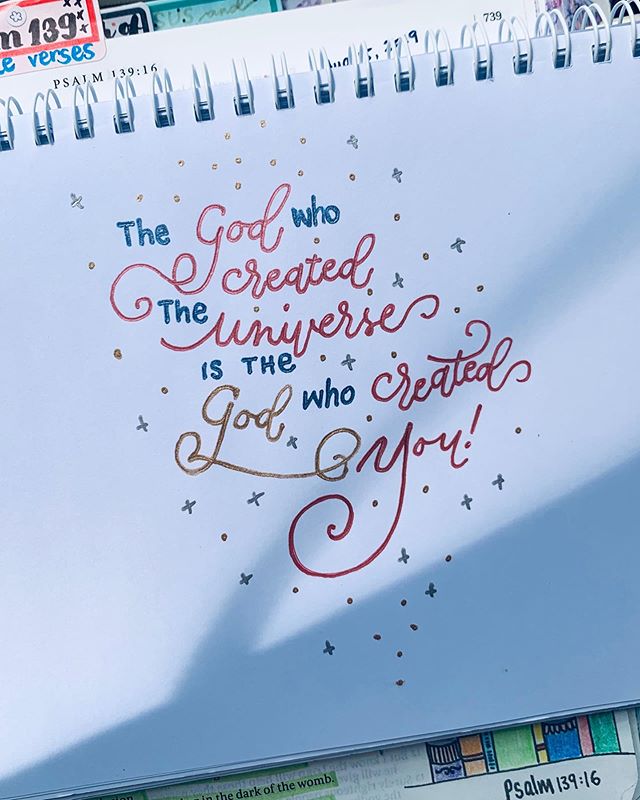 US and
139:
verses
739
PSALM 139:16
The God who
created
The universe
IS THE
God who created
You!
in the dark of the womb.
Psalm 139:16